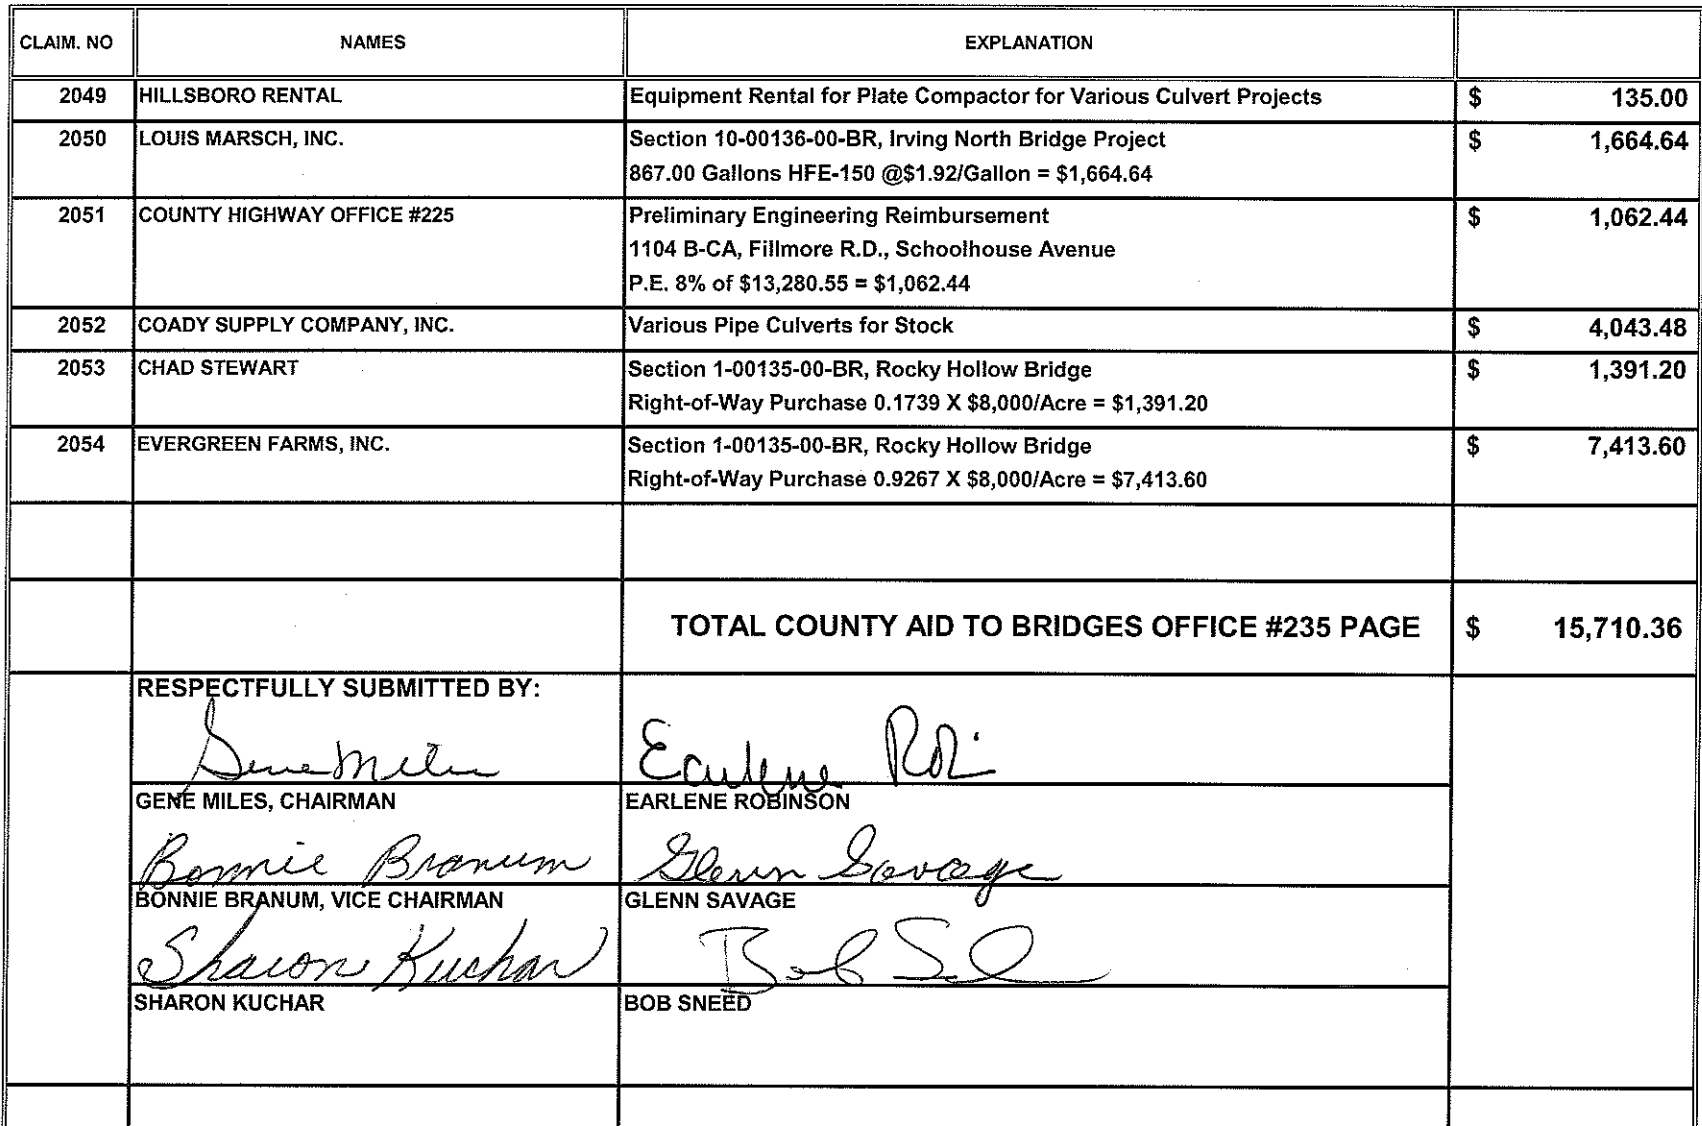 CLAIM. NO NAMES EXPLANATION
2049 HILLSBORO RENTAL Equipment Rental for Plate Compactor for Various Culvert Projects $ 135.00
2050 LOUIS MARSCH, INC. Section 10-00136-00-BR, Irving North Bridge Project $ 1,664.64
867.00 Gallons HFE-150 @$1.92/Gallon = $1,664.64
2051 COUNTY HIGHWAY OFFICE #225 Preliminary Engineering Reimbursement $ 1,062.44
1104 B-CA, Fillmore R.D., Schoolhouse Avenue
P.E. 8% of $13,280.55 = $1,062.44
2052 COADY SUPPLY COMPANY, INC. Various Pipe Culverts for Stock $ 4,043.48
2053 CHAD STEWART Section 1-00135-00-BR, Rocky Hollow Bridge $ 1,391.20
Right-of-Way Purchase 0.1739 X $8,000/Acre = $1,391.20
2054 EVERGREEN FARMS, INC. Section 1-00135-00-BR, Rocky Hollow Bridge $ 7,413.60
Right-of-Way Purchase 0.9267 X $8,000/Acre = $7,413.60
TOTAL COUNTY AID TO BRIDGES OFFICE #235 PAGE $ 15,710.36
RESPECTFULLY SUBMITTED BY:
Gene Miles Earlene Rob
GENE MILES, CHAIRMAN EARLENE ROBINSON
Bonnie Branum Glenn Savage
BONNIE BRANUM, VICE CHAIRMAN GLENN SAVAGE
Sharon Kuchar Bob
SHARON KUCHAR BOB SNEED